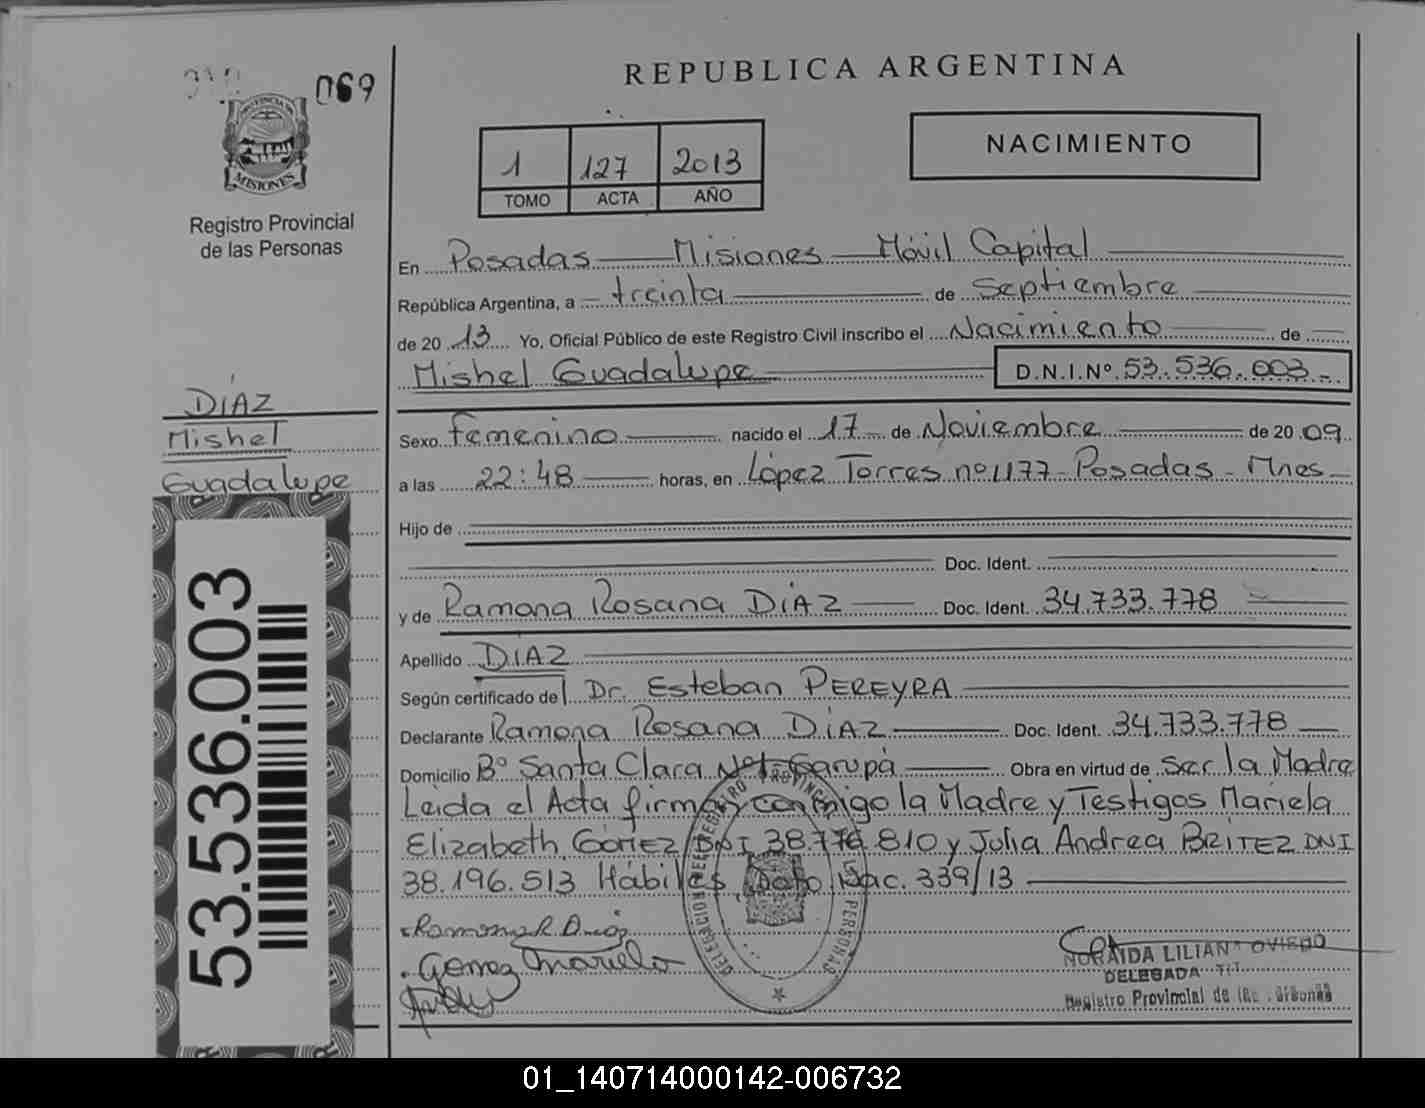 069
PROVINCIA DE
MISIONES
Registro Provincial
de las Personas
REPUBLICA ARGENTINA
1 127 2013
TOMO ACTA AÑO
NACIMIENTO
En Posadas Misiones Móvil Capital
República Argentina, a treinta de Septiembre
de 20 13 Yo, Oficial Público de este Registro Civil inscribo el Nacimiento de
Mishel Guadalupe D.N.I.Nº 53.536.003
DÍAZ
Mishel
Guadalupe
Sexo femenino nacido el 17 de Noviembre de 20 09
a las 22:48 horas, en López Torres nº 1177 - Posadas - Mnes
Hijo de
Doc. Ident.
y de Ramona Rosana DíAZ Doc. Ident. 34.733.778
Apellido DIAZ
Según certificado del Dr. Esteban PEREYRA
Declarante Ramona Rosana DíAZ Doc. Ident. 34.733.778
Domicilio Bº Santa Clara Garupá Obra en virtud de Ser la Madre
Leida el Acta firman conmigo la Madre y Testigos Mariela
Elizabeth GÓMEZ DNI 38.776.810 y Julia Andrea BRÍTEZ DNI
38.196.513 Hábiles Dato Nac. 339/13
Ramona R Díaz
Gomez Mariela
DELEGACION REGISTRO PROVINCIAL LAS PERSONAS
NORAIDA LILIANA OVIEDO
DELEGADA TIT.
Registro Provincial de las Personas
53.536.003
01_140714000142-006732